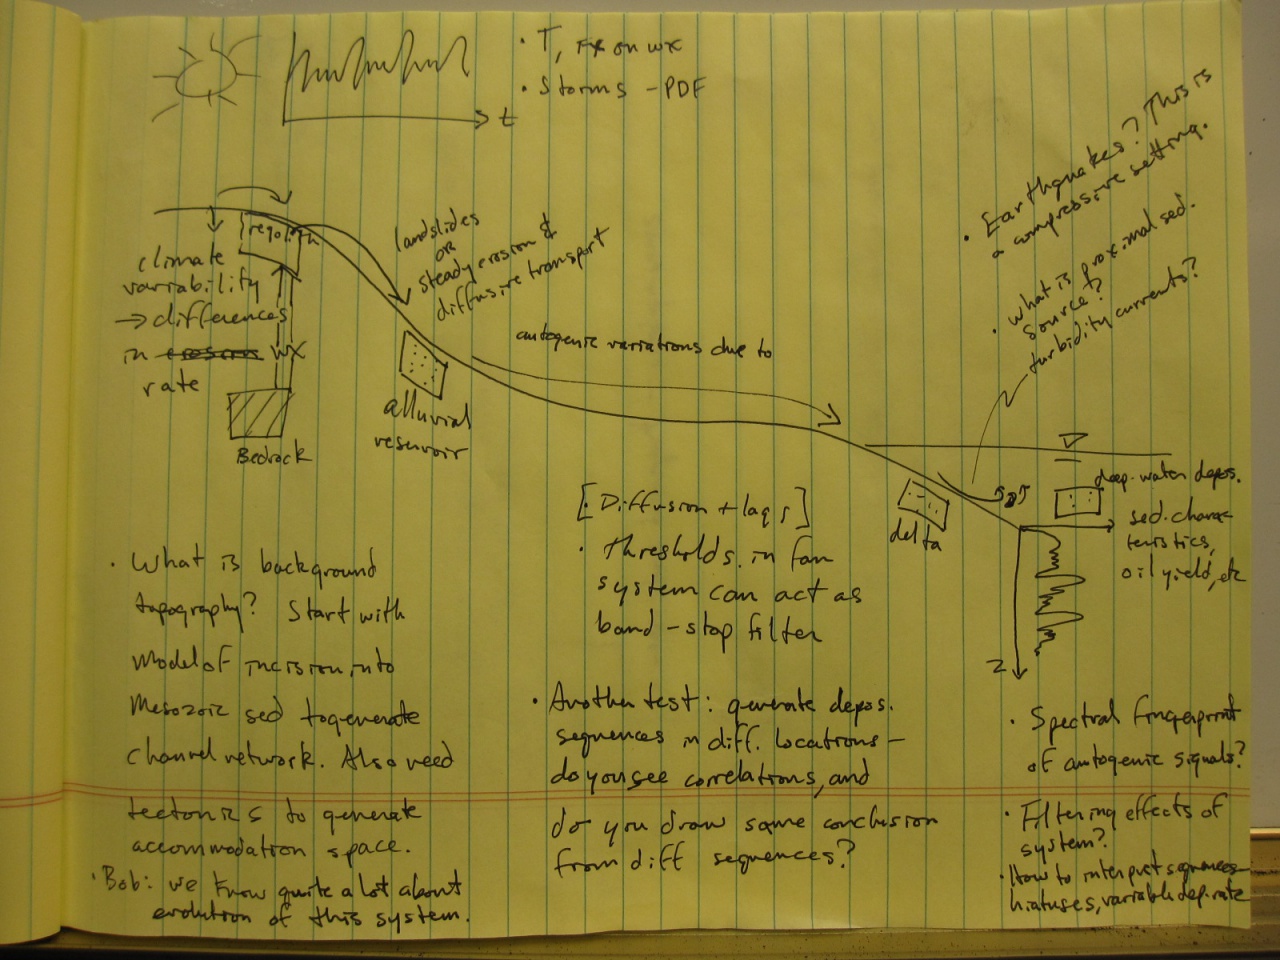 • T, FX on wx
• Storms - PDF
t
• Earthquakes? This is
a compressive setting.
• What is proximal sed.
source?
turbidity currents?
regolith
climate
variability
→ differences
in erosion wx
rate
Bedrock
landslides
or
steady erosion &
diffusive transport
alluvial
reservoir
autogenic variations due to
delta
deep-water depos.
sed. charac-
teristics,
oil yield, etc
z
[Diffusion + lags]
• thresholds in fan
system can act as
band-stop filter
• What is background
topography? Start with
model of incision into
Mesozoic sed to generate
channel network. Also need
tectonics to generate
accommodation space.
• Bob: we know quite a lot about
evolution of this system.
• Another test: generate depos.
sequences in diff. locations -
do you see correlations, and
do you draw same conclusion
from diff sequences?
• Spectral fingerprint
of autogenic signals?
• Filtering effects of
system?
• How to interpret sequences -
hiatuses, variable dep. rate